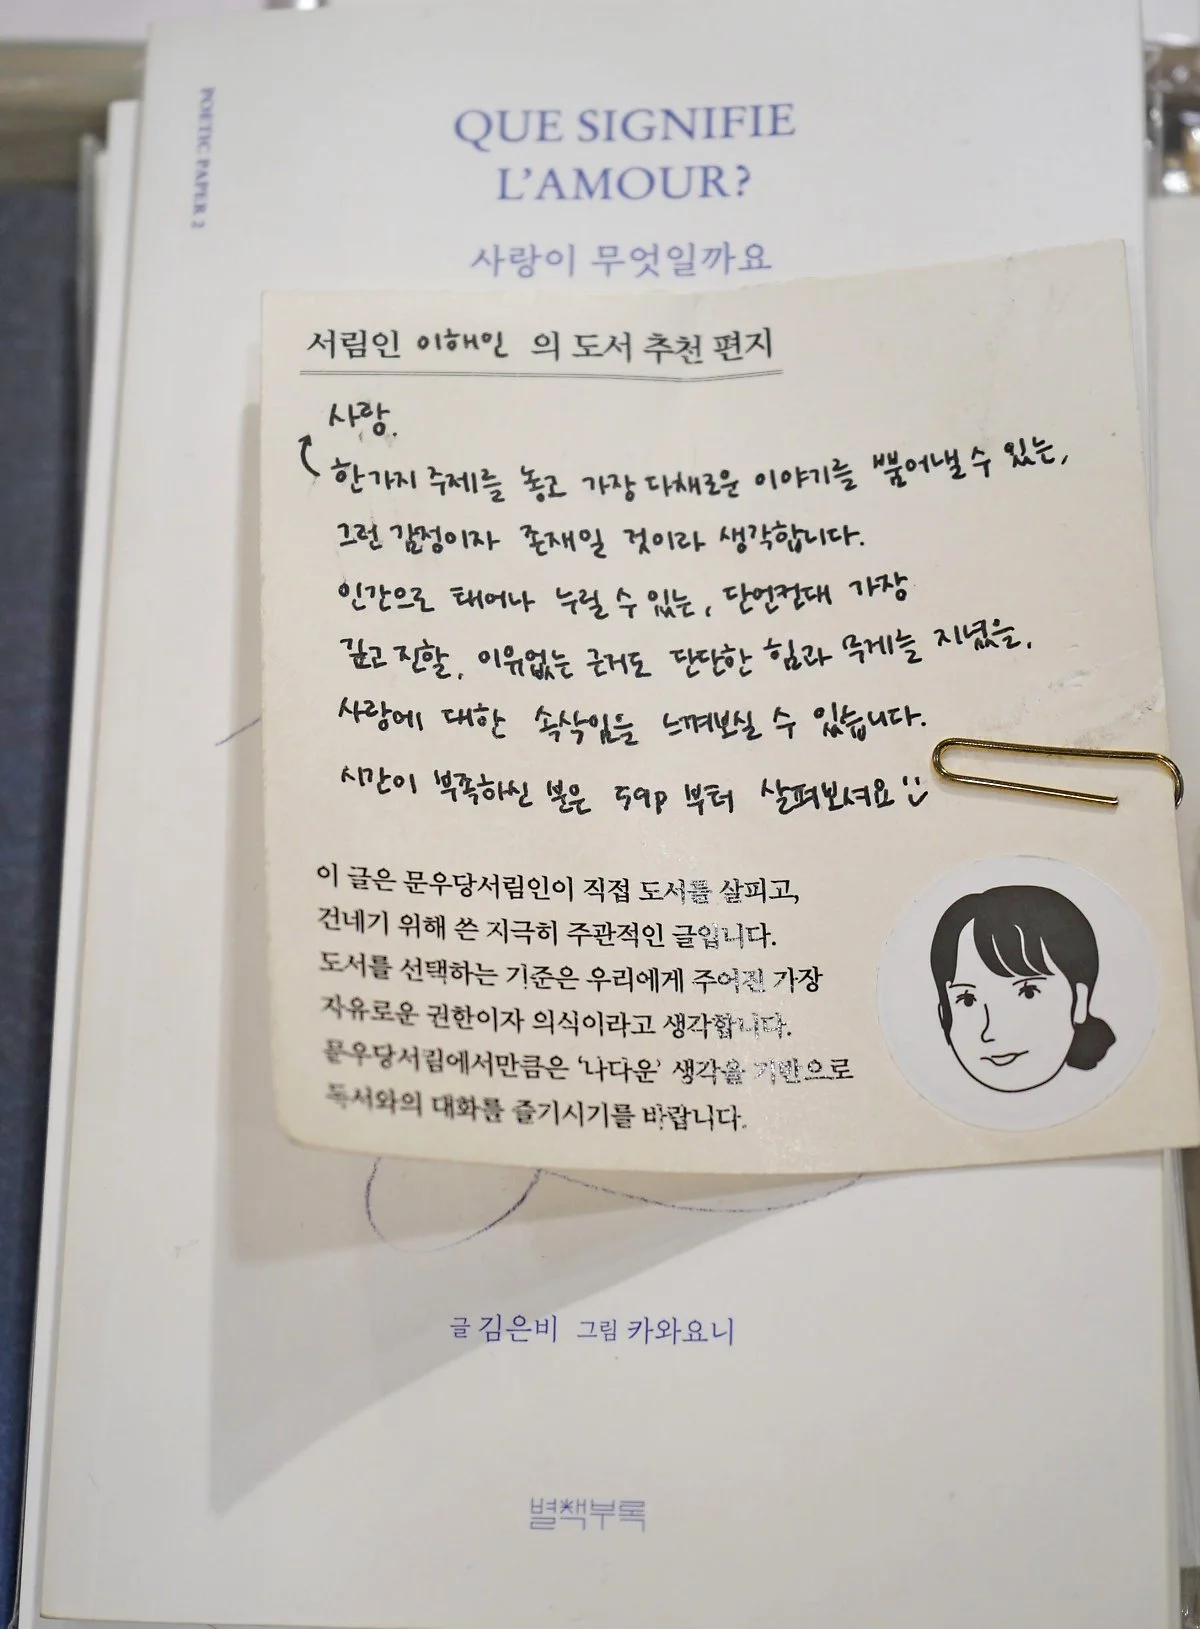 POETIC PAPER 2
QUE SIGNIFIE
L'AMOUR?
사랑이 무엇일까요
서림인 이해인 의 도서 추천 편지
사랑.
한가지 주제를 놓고 가장 다채로운 이야기를 뿜어낼 수 있는,
그런 감정이자 존재일 것이라 생각합니다.
인간으로 태어나 누릴 수 있는, 단언컨대 가장
깊고 진할, 이유없는 근거도 단단한 힘과 무게를 지녔을,
사랑에 대한 속삭임을 느껴보실 수 있습니다.
시간이 부족하신 분은 59p 부터 살펴보셔요
이 글은 문우당서림인이 직접 도서를 살피고,
건네기 위해 쓴 지극히 주관적인 글입니다.
도서를 선택하는 기준은 우리에게 주어진 가장
자유로운 권한이자 의식이라고 생각합니다.
문우당서림에서만큼은 '나다운' 생각을 기반으로
독서와의 대화를 즐기시기를 바랍니다.
글 김은비 그림 카와요니
별책부록